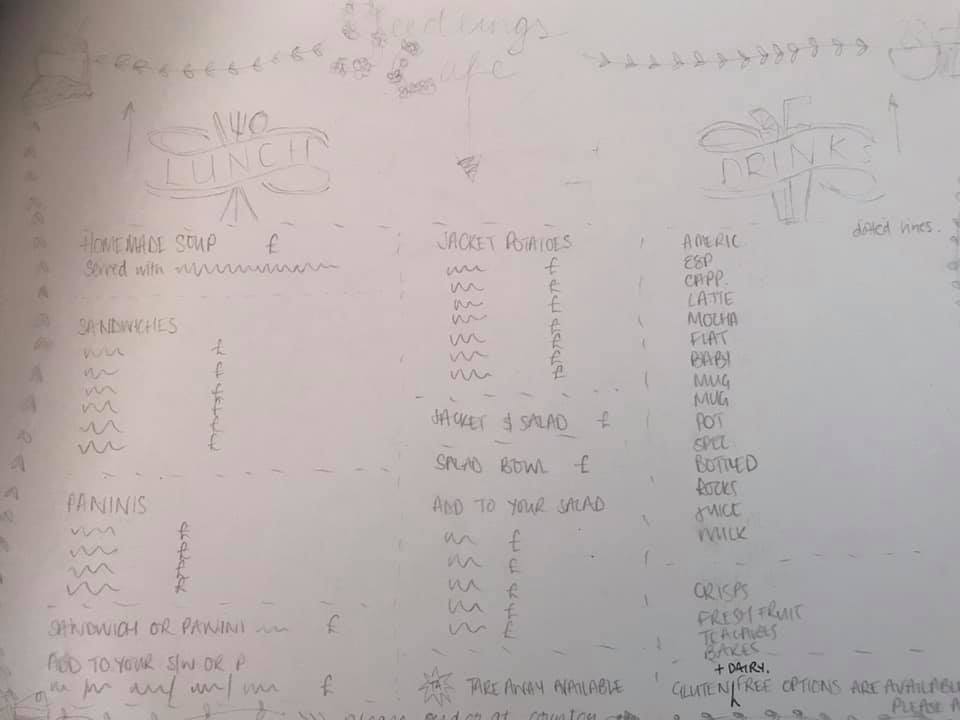 Seedlings
Cafe
LUNCH
DRINKS
dotted lines.
HOMEMADE SOUP £
Served with
SANDWICHES
£
£
£
£
£
£
PANINIS
£
£
£
£
SANDWICH OR PANINI £
ADD TO YOUR S/W OR P
/ / £
JACKET POTATOES
£
£
£
£
£
£
£
JACKET & SALAD £
SALAD BOWL £
ADD TO YOUR SALAD
£
£
£
£
£
TA TAKE AWAY AVAILABLE
AMERIC
ESP
CAPP.
LATTE
MOCHA
FLAT
BABY
MUG
MUG
POT
SPEC
BOTTLED
ROCKS
JUICE
MILK
CRISPS
FRESH FRUIT
TEACAKES
BAKES
+ DAIRY.
GLUTEN/FREE OPTIONS ARE AVAILABL
PLEASE A
please order at